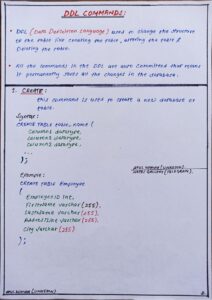 DDL COMMANDS:
• DDL (Data Definition Language) used to change the structure
of the table like creating the table, altering the table &
Deleting the table.
• All the commands in the DDL are auto Committed that means
it permanently saves all the changes in the database.
1. CREATE:
this command is used to create a new database or
table.
Syntax:
CREATE TABLE table_name (
Column1 datatype,
Column2 datatype,
Column3 datatype,
...
);
Example:
CREATE TABLE Employee
(
EmployeeID int,
FirstName varchar (255),
LastName varchar (255),
AddressLine varchar (255),
City varchar (255)
);
(LINKEDIN)
(LINKEDIN)